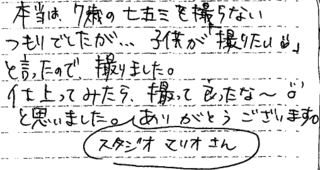 本当は、7歳の七五三を撮らない
つもりでしたが… 子供が「撮りたい」
と言ったので、撮りました。
仕上ってみたら、撮って良ったな～
と思いました。ありがとうございます。
スタジオマリオさん